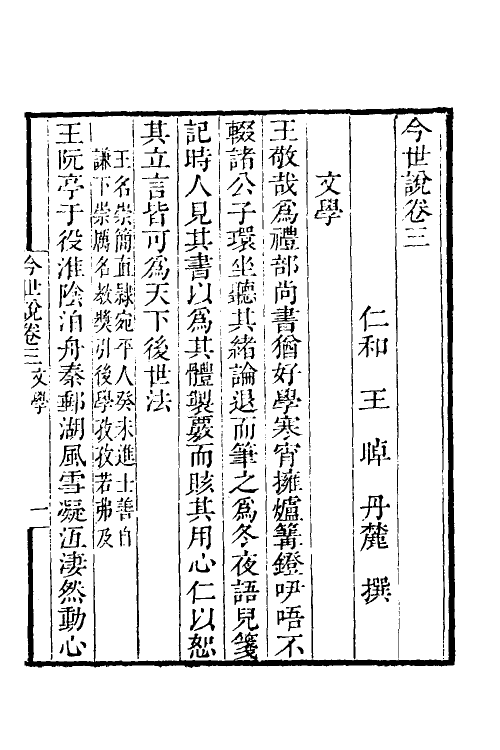 今世說卷三
仁和　王　晫　丹麓　撰
文學
王敬哉為禮部尚書猶好學寒宵擁爐篝鐙咿唔不
輟諸公子環坐聽其緒論退而筆之為冬夜語兒箋
記時人見其書以為其體製嚴而賅其用心仁以恕
其立言皆可為天下後世法
王名崇簡直隸宛平人癸未進士善自
謙下崇厲名教獎引後學孜孜若弗及
王阮亭于役淮陰泊舟秦郵湖風雪凝沍淒然動心
今世說卷三 文學　一